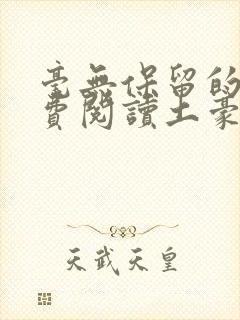 毫無保留的
費閱讀土豪
天武天皇